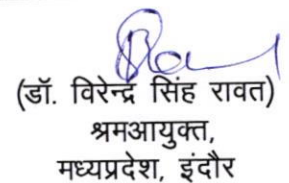 (डॉ. विरेन्द्र सिंह रावत)
श्रमआयुक्त,
मध्यप्रदेश, इंदौर